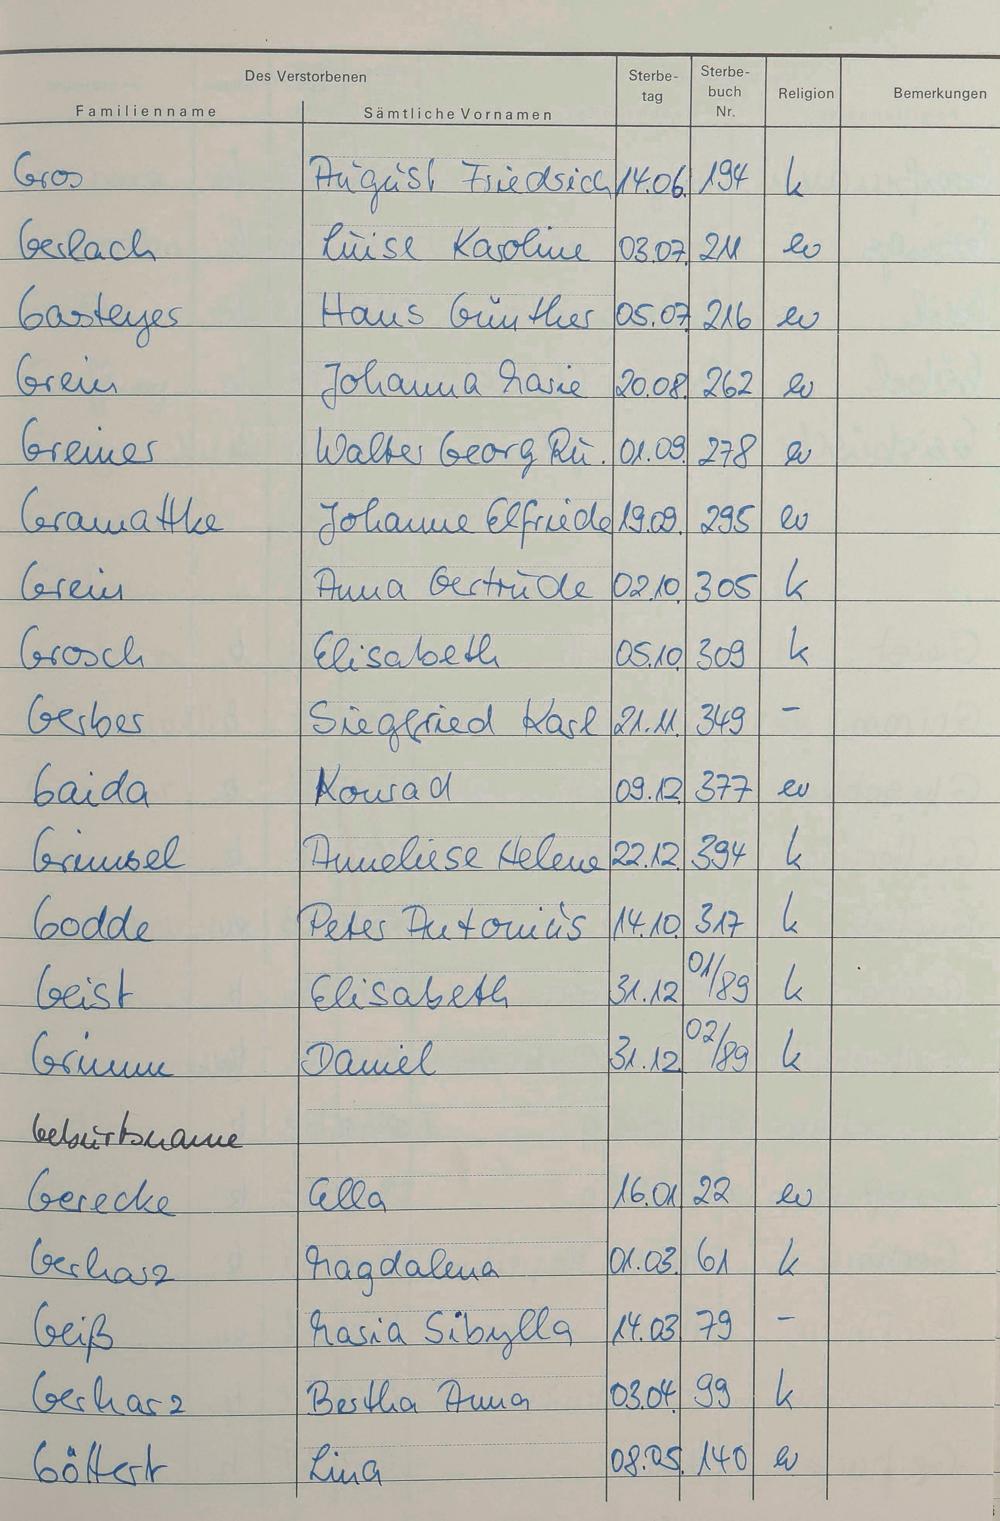 Des Verstorbenen
Familienname Sämtliche Vornamen Sterbe-tag Sterbe-buch Nr. Religion Bemerkungen
Gros August Friedrich 14.06. 194 k
Gerlach Luise Karoline 03.07. 211 ev
Gasteyer Hans Günther 05.07 216 ev
Grein Johanna Marie 20.08. 262 ev
Greiner Walter Georg Ru. 01.09. 278 ev
Gramattke Johanne Elfriede 19.09. 295 ev
Grein Anna Gertrude 02.10. 305 k
Grosch Elisabeth 05.10 309 k
Gerber Siegfried Karl 21.11. 349 -
Gaida Konrad 09.12 377 ev
Grimsel Anneliese Helene 22.12. 394 k
Godde Peter Antonius 14.10. 317 k
Geist Elisabeth 31.12 01/89 k
Grimm Daniel 31.12 02/89 k
Geburtsname
Gerecke Ella 16.01 22 ev
Gerharz Magdalena 01.03. 61 k
Geiß Maria Sibylla 14.03 79 -
Gerharz Bertha Anna 03.04. 99 k
Göttert Lina 08.05. 140 ev